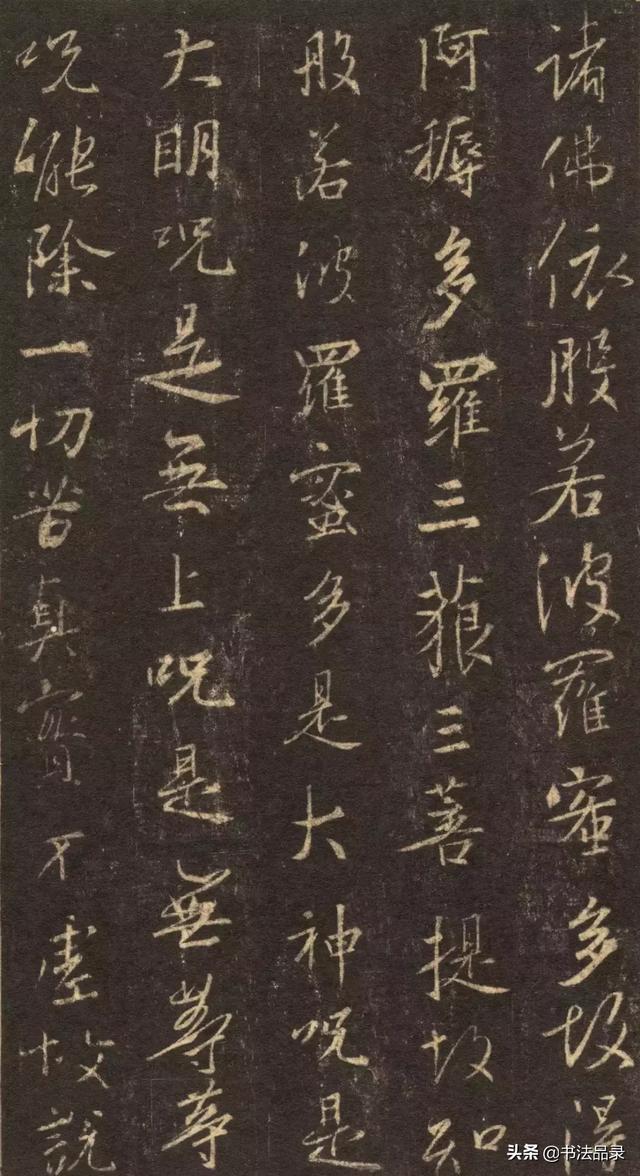 諸佛依般若波羅蜜多故得
阿耨多羅三藐三菩提故知
般若波羅蜜多是大神呪是
大明呪是無上呪是無等等
呪能除一切苦真實不虛故說
头条 @书法品录